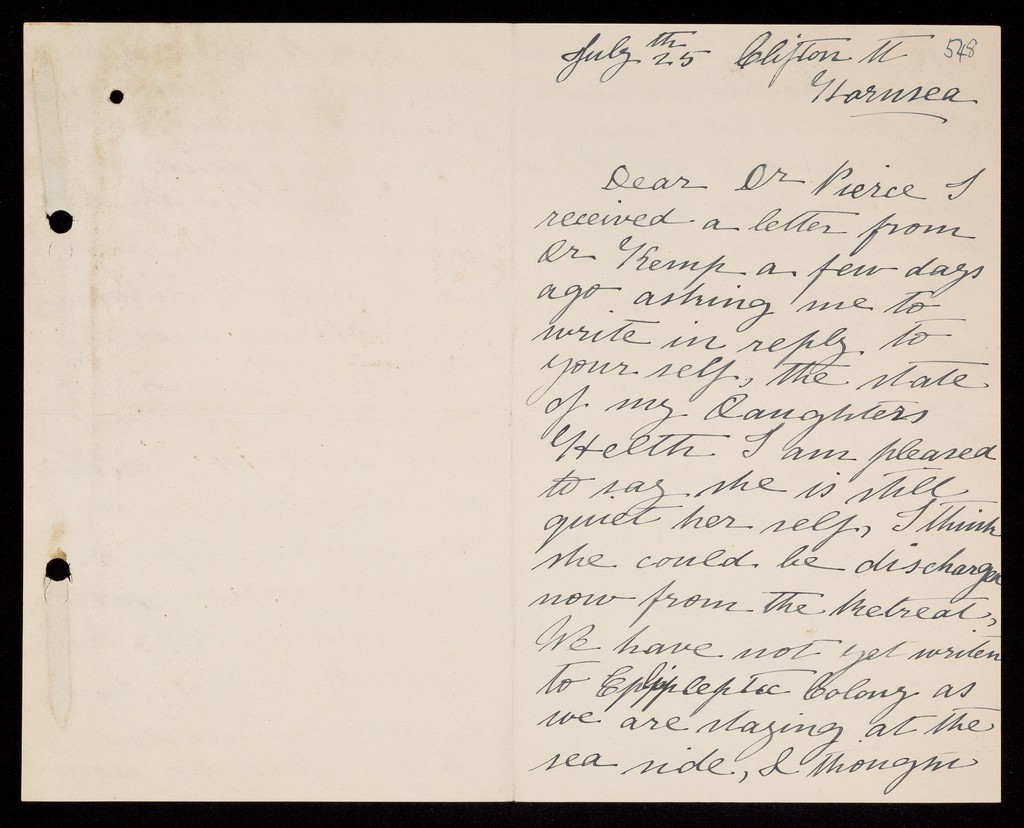 July 25th Clifton St 548
Hornsea
Dear Dr Pierce I
received a letter from
Dr Kemp a few days
ago asking me to
write in reply to
your self, the state
of my Daughters
Helth I am pleased
to say she is still
quiet her self, I think
she could be discharged
now from the Retreat,
We have not yet writen
to Colony as
we are staying at the
sea side, I